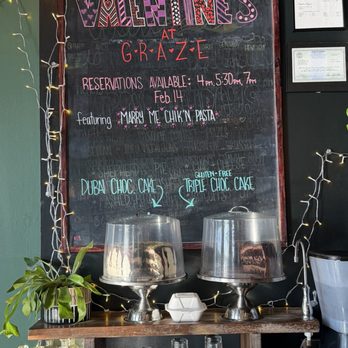 VALENTINES
AT
GRAZE
RESERVATIONS AVAILABLE: 4pm, 5:30pm, 7pm
Feb. 14
featuring: MARRY ME CHIK'N PASTA
DUBAI CHOC. CAKE
GLUTEN-FREE
TRIPLE CHOC. CAKE